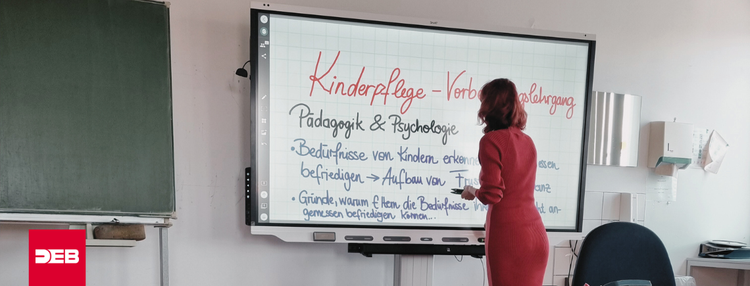 Kinderpflege - Vorb gslehrgang
Pädagogik & Psychologie
• Bedürfnisse von Kindern erkenn essen
befriedigen → Aufbau von anz
• Gründe, warum Eltern die Bedürfnisse ihr t an-
gemessen befriedigen können...
DEB